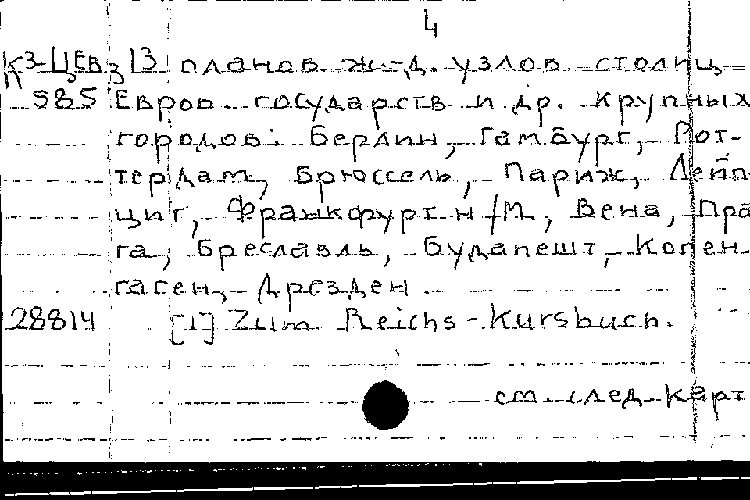 4
К3-ЦЕв3 13 планов ж-д. узлов столиц
985 Европ. государств и др. крупных
городов: Берлин, Гамбург, Рот-
тердам, Брюссель, Париж, Лейп-
циг, Франкфурт н/М, Вена, Пра-
га, Бреславль, Будапешт, Копен-
гаген, Дрезден.
28814 [1] Zum Reichs-Kursbuch.
см. след. карт